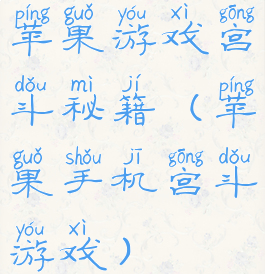 píng guǒ yóu xì gōng
苹果游戏宫
dǒu mì jí píng
斗秘籍（苹
guǒ shǒu jī gōng dǒu
果手机宫斗
yóu xì
游戏）